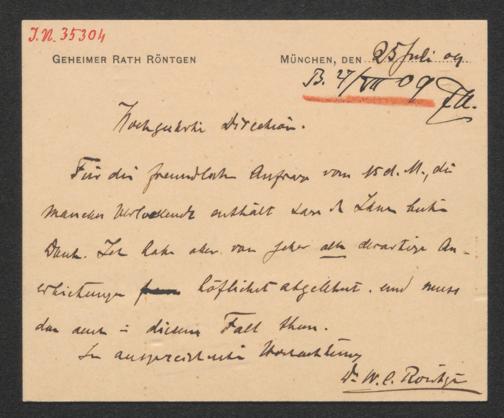 J.N. 35304
GEHEIMER RATH RÖNTGEN
MÜNCHEN, DEN 25 Juli 09.
B. 27/VII 09
Hochgeehrte Direction.
Für die freundliche Anfrage vom 15 d. M., die
manches Verlockende enthält sage ich Ihnen besten
Dank. Ich habe aber von jeher alle derartige An-
erbietungen höflichst abgelehnt. und muss
das auch in diesem Fall thun.
In ausgezeichneter Hochachtung
Dr W. C. Röntgen